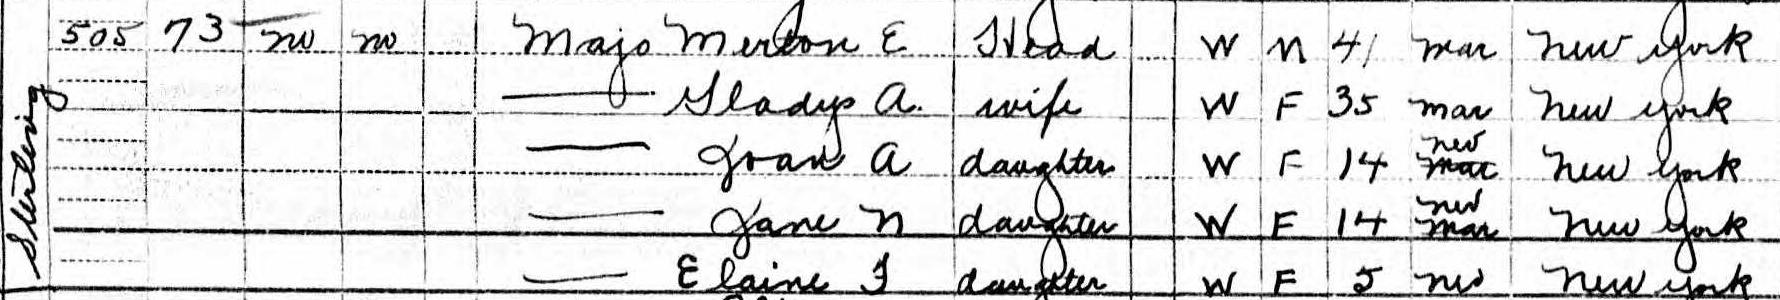 505 73 no no Majo Merton E Head W M 41 Mar New York
— Gladys A. wife W F 35 Mar New York
— Joan A daughter W F 14 Nev Mar New York
— Jane N daughter W F 14 Nev Mar New York
— Elaine F daughter W F 5 Nev New York
Sterling